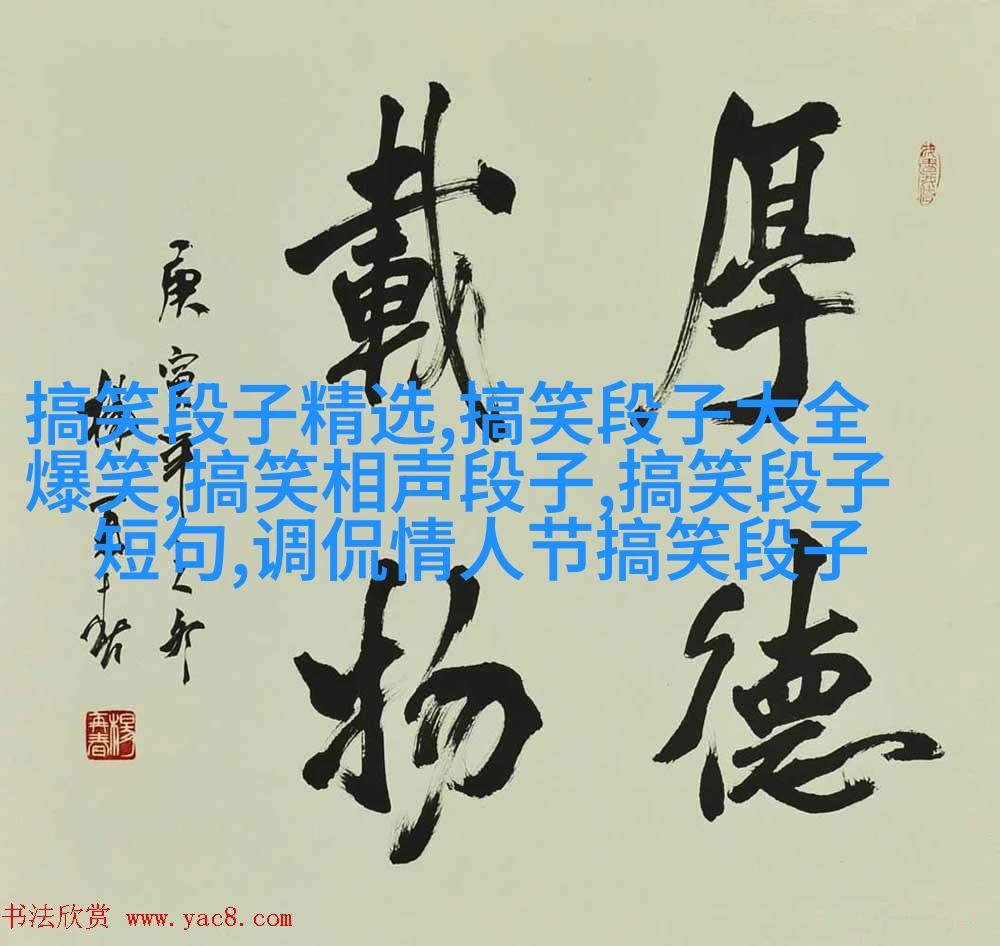 厚德
載物
庚寅年
楊再春
搞笑段子精选,搞笑段子大全
爆笑,搞笑相声段子,搞笑段子
短句,调侃情人节搞笑段子
楊再春
书法欣赏 www.yac8.com